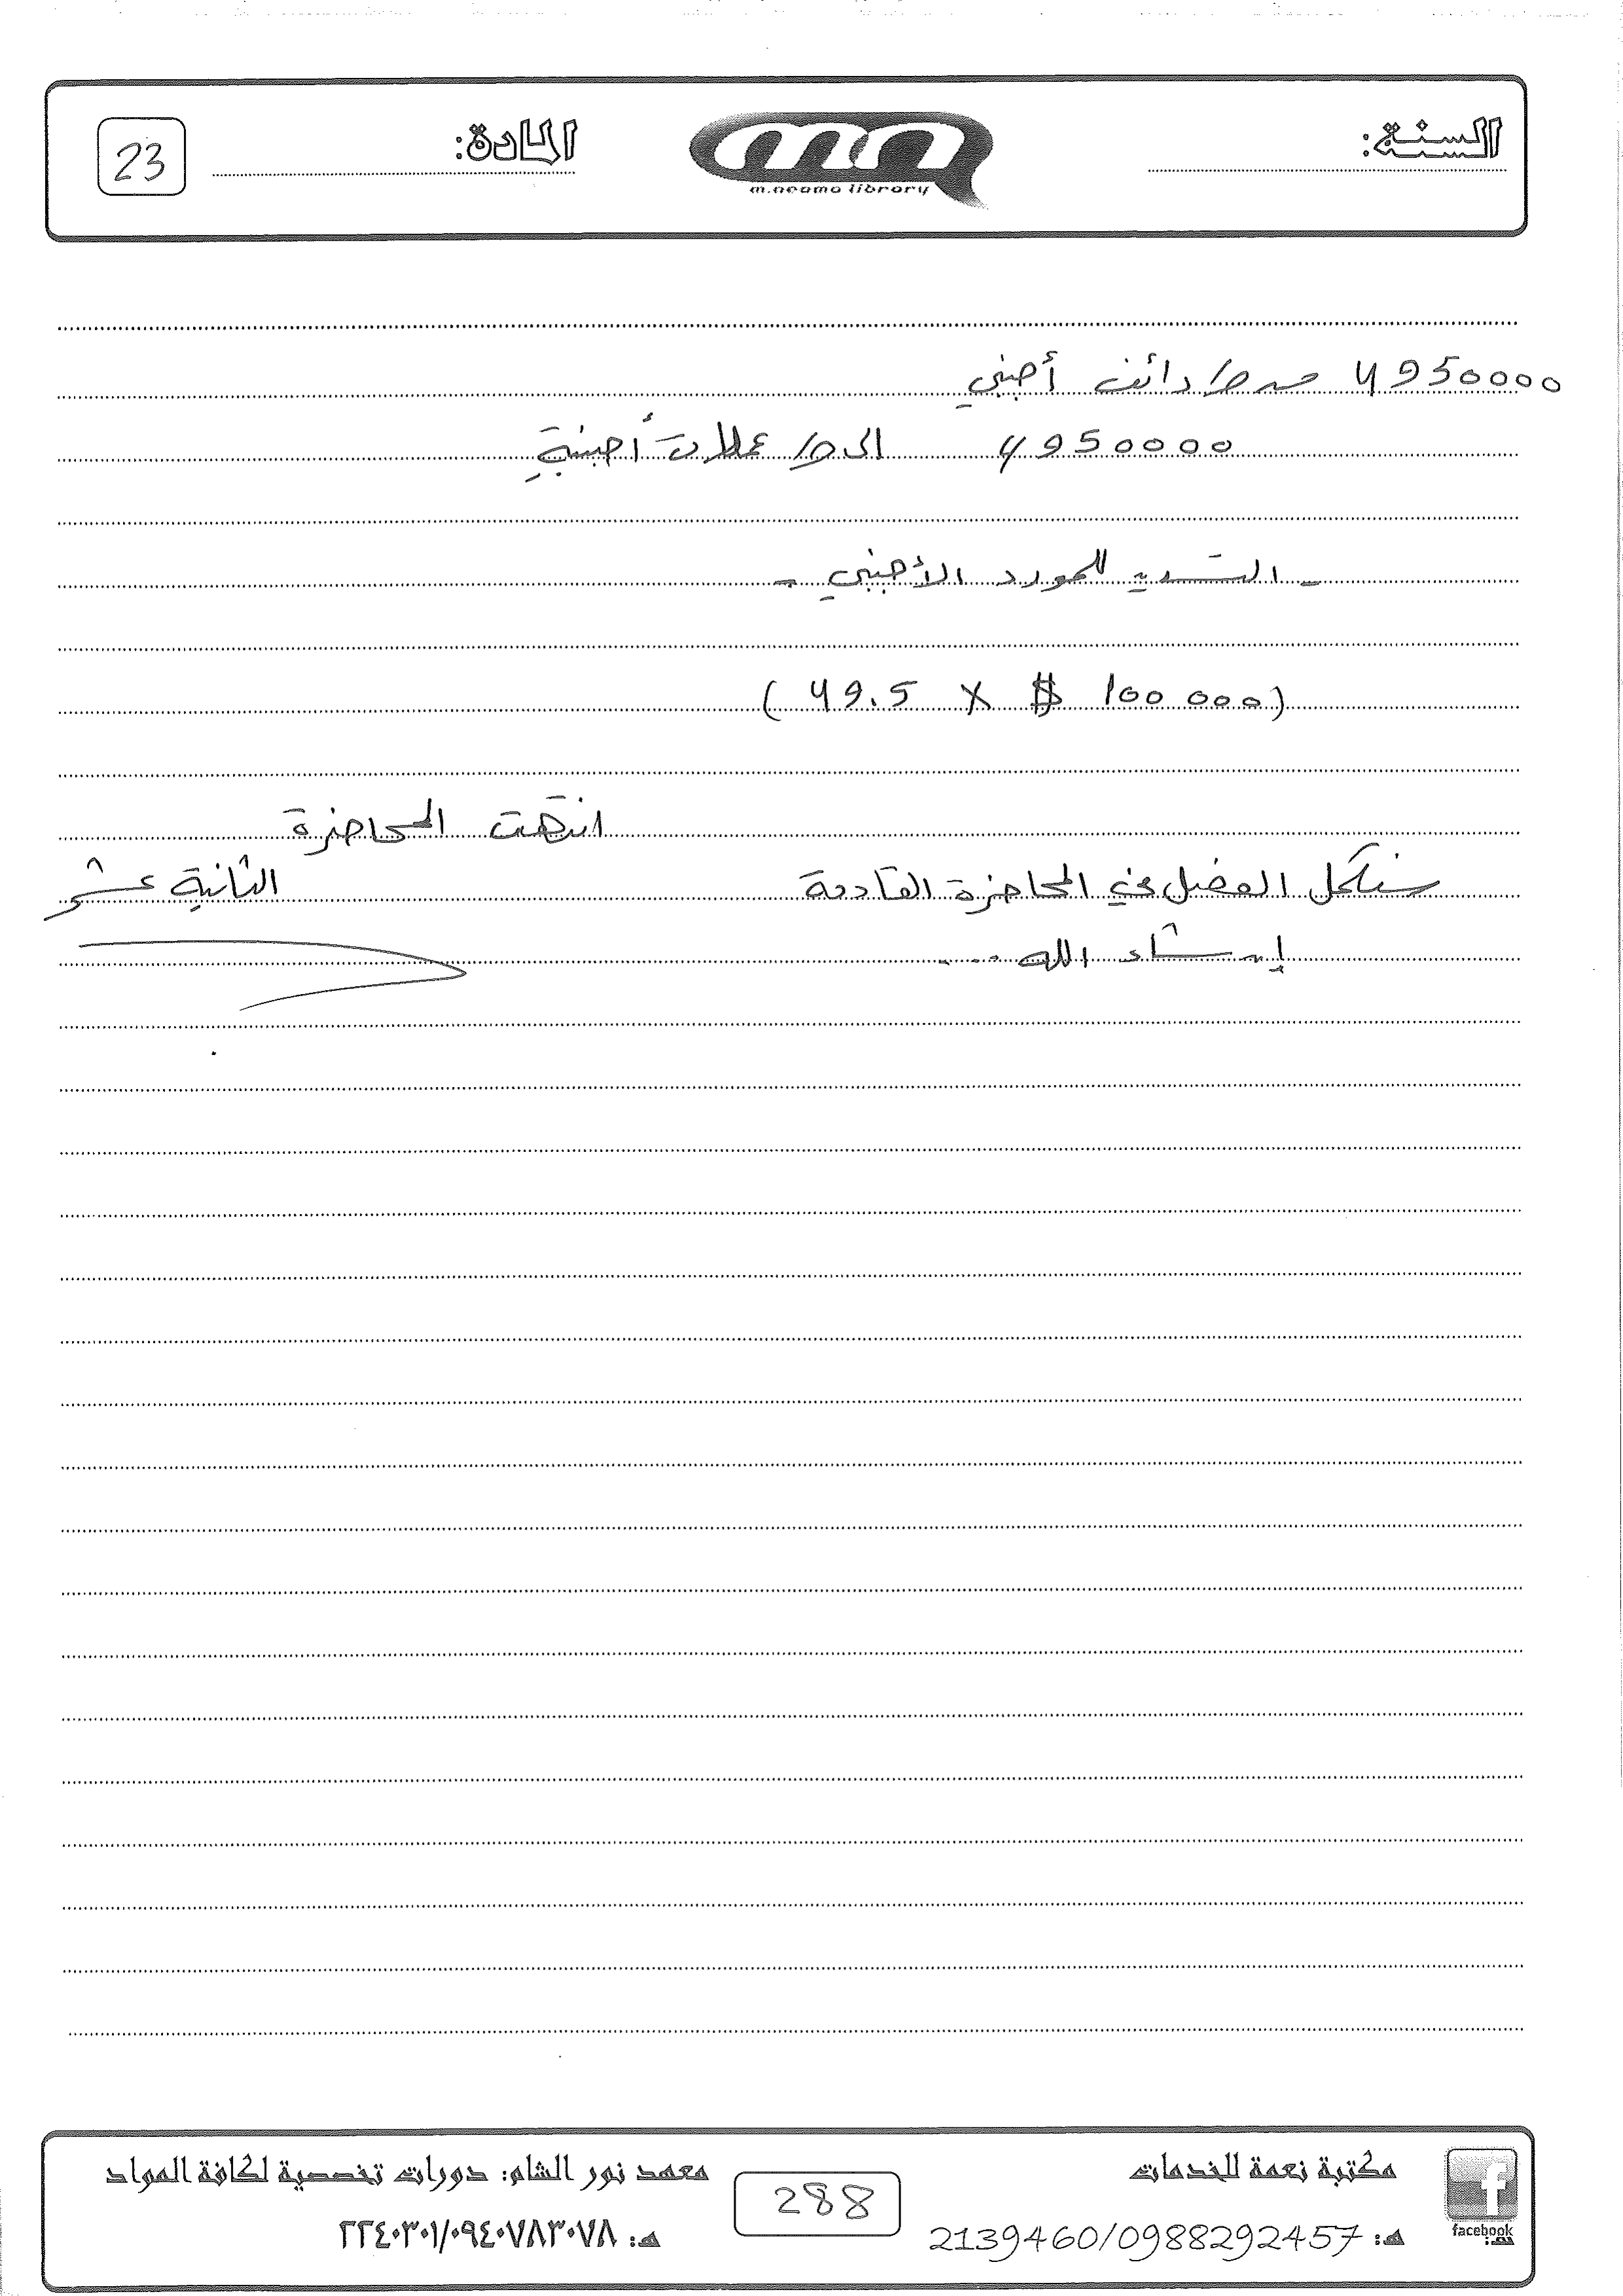 السنة:
m.neama library
المادة:
23
4950000 من ح/ دائن أجنبي
4950000 الى ح/ عملات أجنبية
- التسديد للمورد الأجنبي -
(49.5 X $ 100 000)
انتهت المحاضرة
الثانية عشر
سنكمل الفصل في المحاضرة القادمة
إن شاء الله ...
facebook
مكتبة نعمة للخدمات
هـ: 2139460/0988292457
288
معهد نور الشام: دورات تخصصية لكافة المواد
هـ: ٢٢٤٠٣٠١/٠٩٤٠٧٨٣٠٧٨